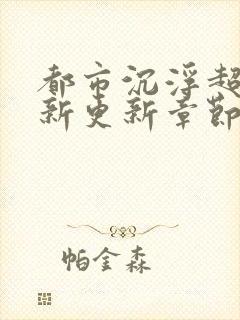 都市沉浮超
新更新章节
帕金森